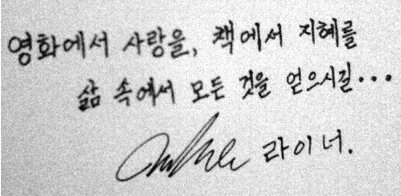 영화에서 사랑을, 책에서 지혜를
삶 속에서 모든 것을 얻으시길...
라이너.